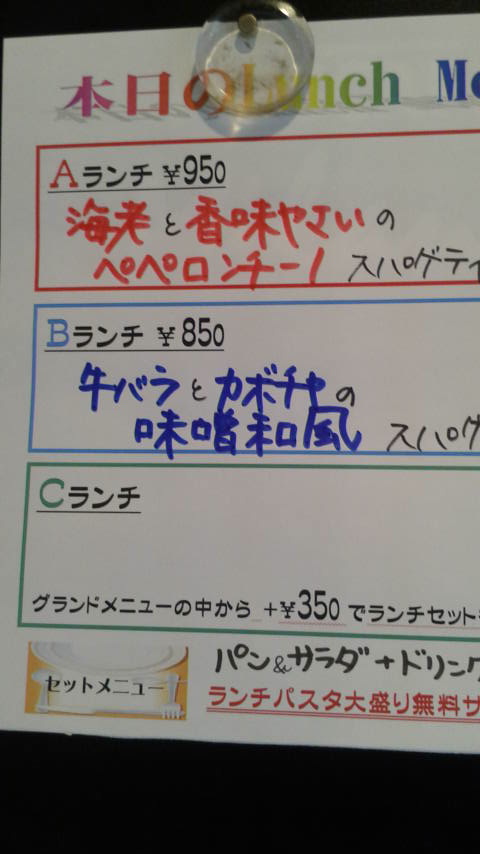 本日のLunch Me
Aランチ ¥950
海老と香味やさいの
ペペロンチーノ スパゲティ
Bランチ ¥850
牛バラとカボチャの
味噌和風 スパゲ
Cランチ
グランドメニューの中から +¥350でランチセット
セットメニュー
パン&サラダ+ドリンク
ランチパスタ大盛り無料サ